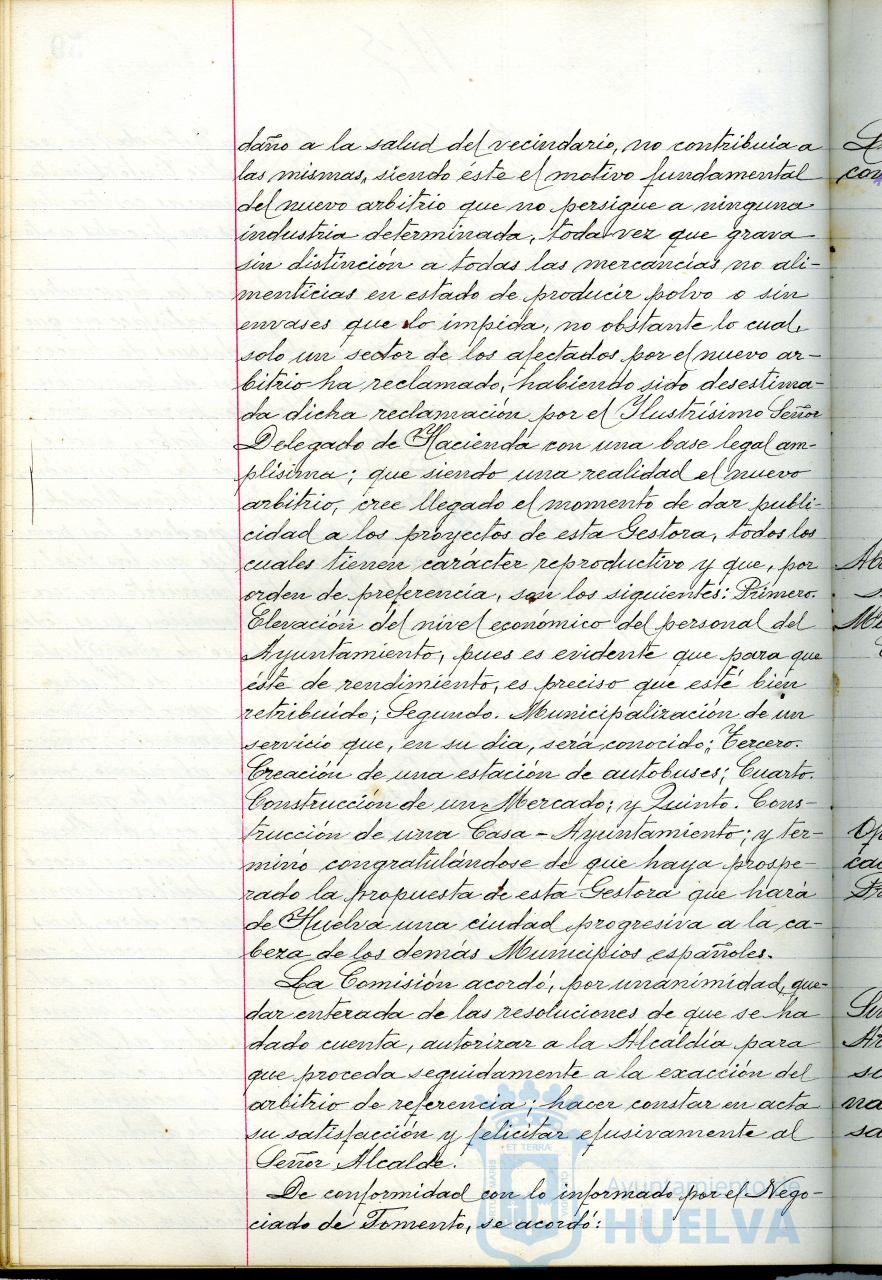 daño a la salud del vecindario, no contribuia a
las mismas, siendo éste el motivo fundamental
del nuevo arbitrio que no persigue a ninguna
industria determinada, toda vez que grava
sin distinción a todas las mercancías no ali-
menticias en estado de producir polvo o sin
envases que lo impida, no obstante lo cual,
solo un sector de los afectados por el nuevo ar-
bitrio ha reclamado, habiendo sido desestima-
da dicha reclamación por el Ilustrísimo Señor
Delegado de Hacienda con una base legal am-
plísima; que siendo una realidad el nuevo
arbitrio, cree llegado el momento de dar publi-
cidad a los proyectos de esta Gestora, todos los
cuales tienen carácter reproductivo y que, por
orden de preferencia, son los siguientes: Primero.
Elevación del nivel económico del personal del
Ayuntamiento, pues es evidente que para que
éste de rendimiento, es preciso que esté bien
retribuído; Segundo. Municipalización de un
servicio que, en su dia, será conocido; Tercero.
Creación de una estación de autobuses; Cuarto.
Construcción de un Mercado; y Quinto. Cons-
trucción de una Casa-Ayuntamiento; y ter-
minó congratulándose de que haya prospe-
rado la propuesta de esta Gestora que hará
de Huelva una ciudad progresiva a la ca-
beza de los demás Municipios españoles.
La Comisión acordó, por unanimidad, que-
dar enterada de las resoluciones de que se ha
dado cuenta, autorizar a la Alcaldía para
que proceda seguidamente a la exacción del
arbitrio de referencia; hacer constar en acta
su satisfacción y felicitar efusivamente al
Señor Alcalde.
De conformidad con lo informado por el Nego-
ciado de Fomento, se acordó:
Ayuntamiento de
HUELVA